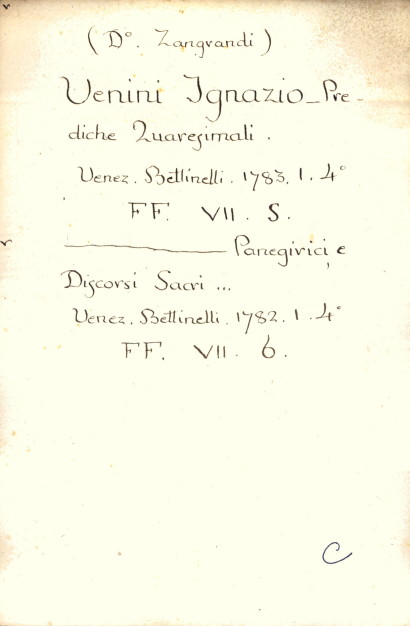 ( D°. Zangrandi )
Venini Ignazio_Pre_
diche Quaresimali .
Venez. Bettinelli. 1783. 1. 4°
FF. VII. 5.
———— Panegirici, e
Discorsi Sacri ...
Venez. Bettinelli. 1782. 1. 4°
FF. VII. 6.
C